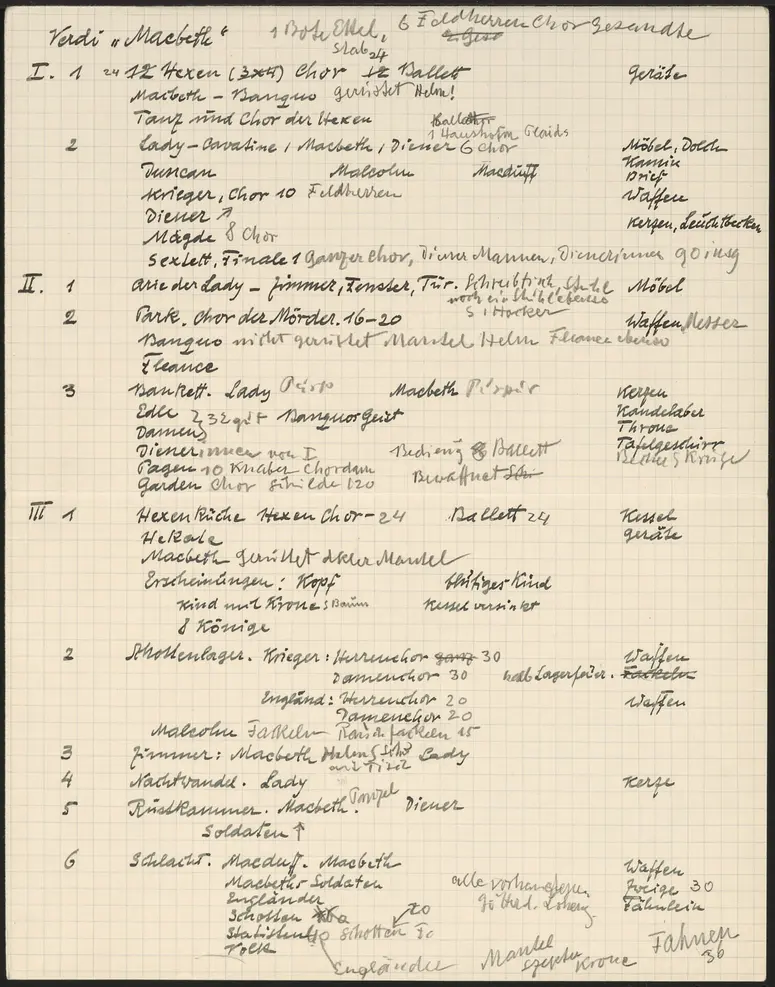 Verdi „Macbeth" 1 Bote Ettel, 6 Feldherren Chor Gesandte
Stab 24
I. 1 24 12 Hexen (3x4) Chor 12 Ballett Geräte
Macbeth – Banquo gerüstet Helm!
Tanz und Chor der Hexen Ballett
1 Haushofm Plaids
2 Lady – Cavatine, Macbeth, Diener 6 Chor Möbel, Dolch
Kamin
Duncan Malcolm Macduff Brief
Krieger, Chor 10 Feldherren Waffen
Diener ↗
Kerzen, Leuchtbecken
Mägde 8 Chor
Sextett, Finale 1 Ganzer Chor, Diener Mannen, Dienerinnen 90 insg
II. 1 Arie der Lady – Zimmer, Fenster, Tür. Schreibtisch, Stuhl Möbel
noch ein Stuhl ebenso
2 Park. Chor der Mörder. 16–20 5 Hocker Waffen, Messer
Banquo nicht gerüstet Mantel Helm Fleance ebenso
Fleance
3 Bankett. Lady Macbeth Kerzen
Edle Banquos Geist Kandelaber
Damen Throne
Dienerinnen von I Bedieng Ballett Tafelgeschirr
Pagen 10 Knaben Chordam Becher 5 Krüge
Garden Chor Schilde 120 Bewaffnet
III 1 Hexenküche Hexen Chor – 24 Ballett 24 Kessel
Hekate Geräte
Macbeth Gerüstet dkler Mantel
Erscheinungen: Kopf blutiges Kind
Kind mit Krone s Baum Kessel versinkt
8 Könige
2 Shottenlager. Krieger: Herrenchor ganz 30 Waffen
Damenchor 30 halb Lagerfeier. Fackeln
England: Herrenchor 20 Waffen
Damenchor 20
Malcolm Fackeln Rauchfackeln 15
3 Zimmer: Macbeth Lady
4 Nachtwandel. Lady Kerze
5 Rüstkammer. Macbeth. Diener
Soldaten ↑
6 Schlacht. Macduff. Macbeth Waffen
Macbeths Soldaten Zweige 30
Engländer Fähnlein
Schotten
Statisten 40 Schotten 20
Volk
Engländer Mantel Fahnen
Szepter Krone 36